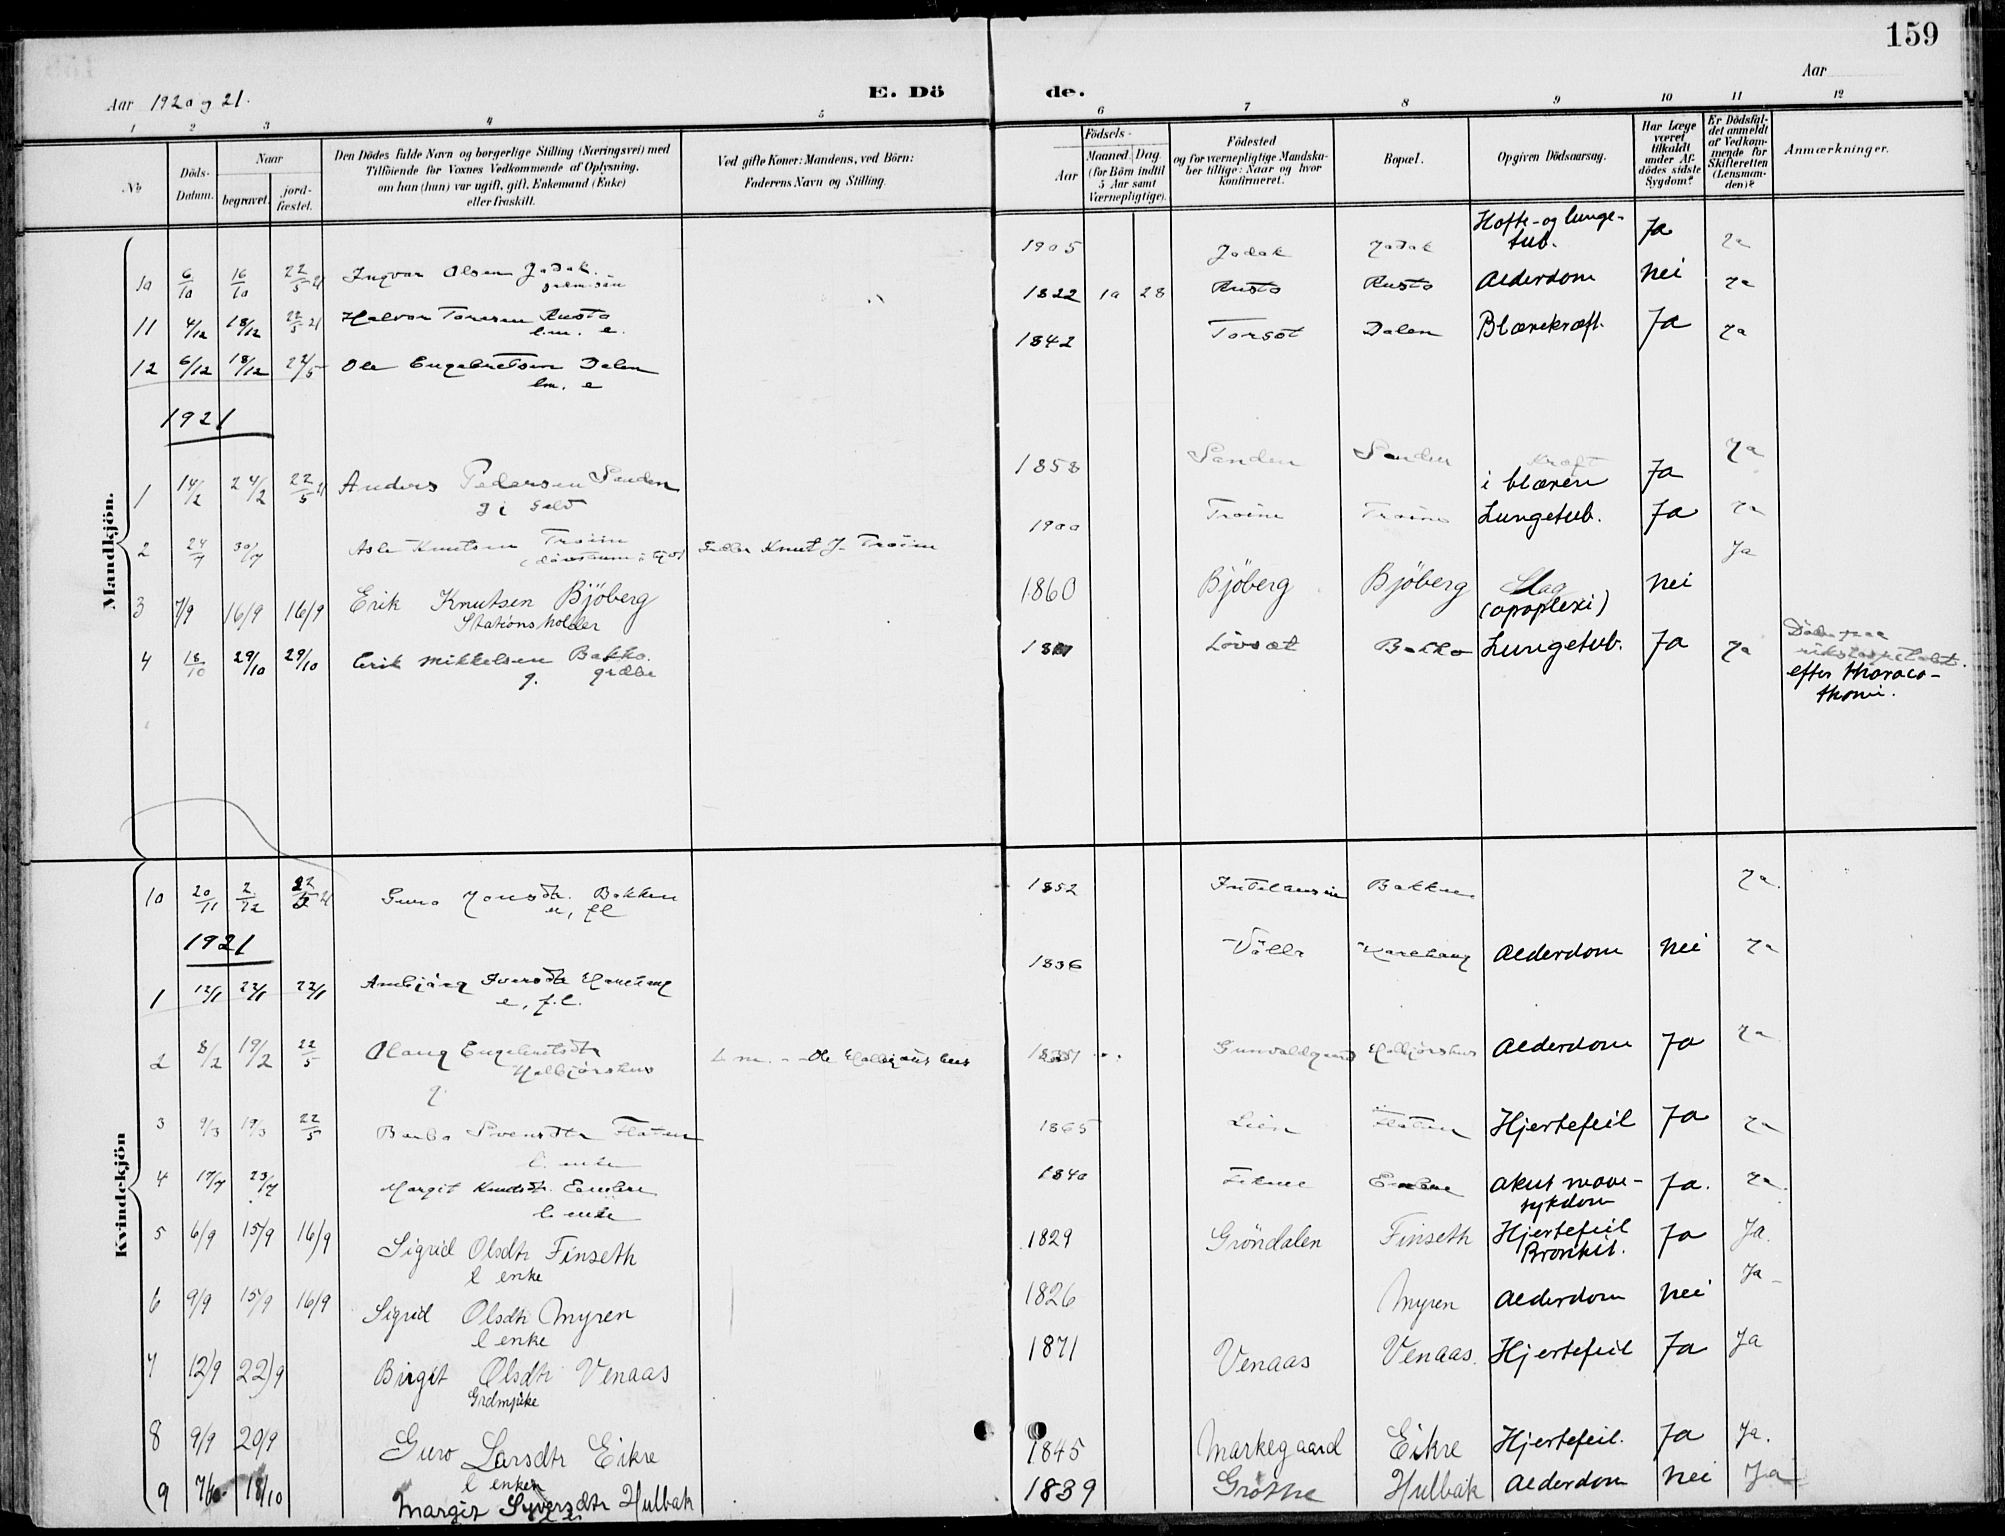 159
Aar 1920 og 21.
E. Dö de.
Aar
1 2 3 4 5 6 7 8 9 10 11 12
No
Döds-Datum.
Naar
begravet.
jord-fæstet.
Den Dödes fulde Navn og borgerlige Stilling (Næringsvei) med
Tilföiende for Voxnes Vedkommende af Oplysning,
om han (hun) var ugift, gift, Enkemand (Enke)
eller fraskilt.
Ved gifte Koner: Mandens, ved Börn:
Faderens Navn og Stilling.
Födsels-
Aar
Maaned. Dag.
(for Börn indtil
5 Aar samt
Værnepligtige).
Födested
og for værnepligtige Mandska-
ber tillige: Naar og hvor
konfirmeret.
Bopæl.
Opgiven Dödsaarsag.
Har Læge
været
tilkaldt
under Af-
dödes sidste
Sygdom?
Er Dödsfal-
det anmeldt
af Vedkom-
mende for
Skifteretten
(Lensman-
den)?
Anmærkninger.
Mandkjön.
10 6/10 16/10 22/5 21 Ingvar Olsen Jodak. 1905 Jodak Jodak Hofte- og lunge-
tub. Ja Ja
11 4/12 18/12 22/5 21 Halvor Toresen Rusto 1822 10 28 Rusto Rusto Alderdom Nei Ja
l.m. e.
12 6/12 18/12 22/5 Ole Engebretsen Dalen 1842 Torsöt Dalen Blærekræft. Ja Ja
lm. e
1921
1 14/2 24/2 22/5 21 Anders Pedersen Sanden 1858 Sanden Sanden Kræft
i blæren Ja Ja
2 24/7 30/7 Asle Knutsen Troim Fader Knut J. Troim 1900 Troim Troim Lungetub. Ja Ja
3 7/9 16/9 16/9 Erik Knutsen Bjöberg 1860 Bjöberg Bjöberg Slag
(apoplexi) Nei Ja
Stationsholder
4 18/10 29/10 29/10 Erik Mikkelsen Bakko. Lövsæt Bakko Lungetub. Ja Ja Döde paa
rikshospitalet.
efter thoraco-
thomi.
g.
Kvindekjön
10 20/11 2/12 22/5 21 Guro Jonsdtr. Bakken 1852 Bakken Ja.
e, fl
1921
1 12/1 22/1 22/1 Ambjörg Iversdtr 1836 Alderdom Nei Ja
e, f.l.
2 8/2 19/2 22/5 Olaug Engebretsdtr Alderdom Ja Ja
g.
3 9/3 19/3 22/5 Barbo Svensdtr Flaten 1865 Lien Flaten Hjertefeil Ja Ja
l. enke
4 17/7 23/7 Margit Knudsdtr. 1840 akut mave-
sykdom Ja. Ja.
l. enke
5 6/9 15/9 16/9 Sigrid Olsdtr Finseth 1829 Gröndalen Finseth Hjertefeil
Bronkit. Ja Ja.
l enke
6 9/9 15/9 16/9 Sigrid Olsdtr Myren 1826 Myren Alderdom Nei Ja
l enke
7 12/9 22/9 Birgit Olsdtr Venaas 1871 Venaas Venaas. Hjertefeil Ja Ja
Grdmpike
8 9/9 20/9 Guro Larsdtr Eikre 1845 Markegaard Eikre Hjertefeil. Ja Ja.
l enke
9 7/10 18/10 Margit Syversdtr Hulbak 1839 Gröthe Hulbak Alderdom Nei Ja